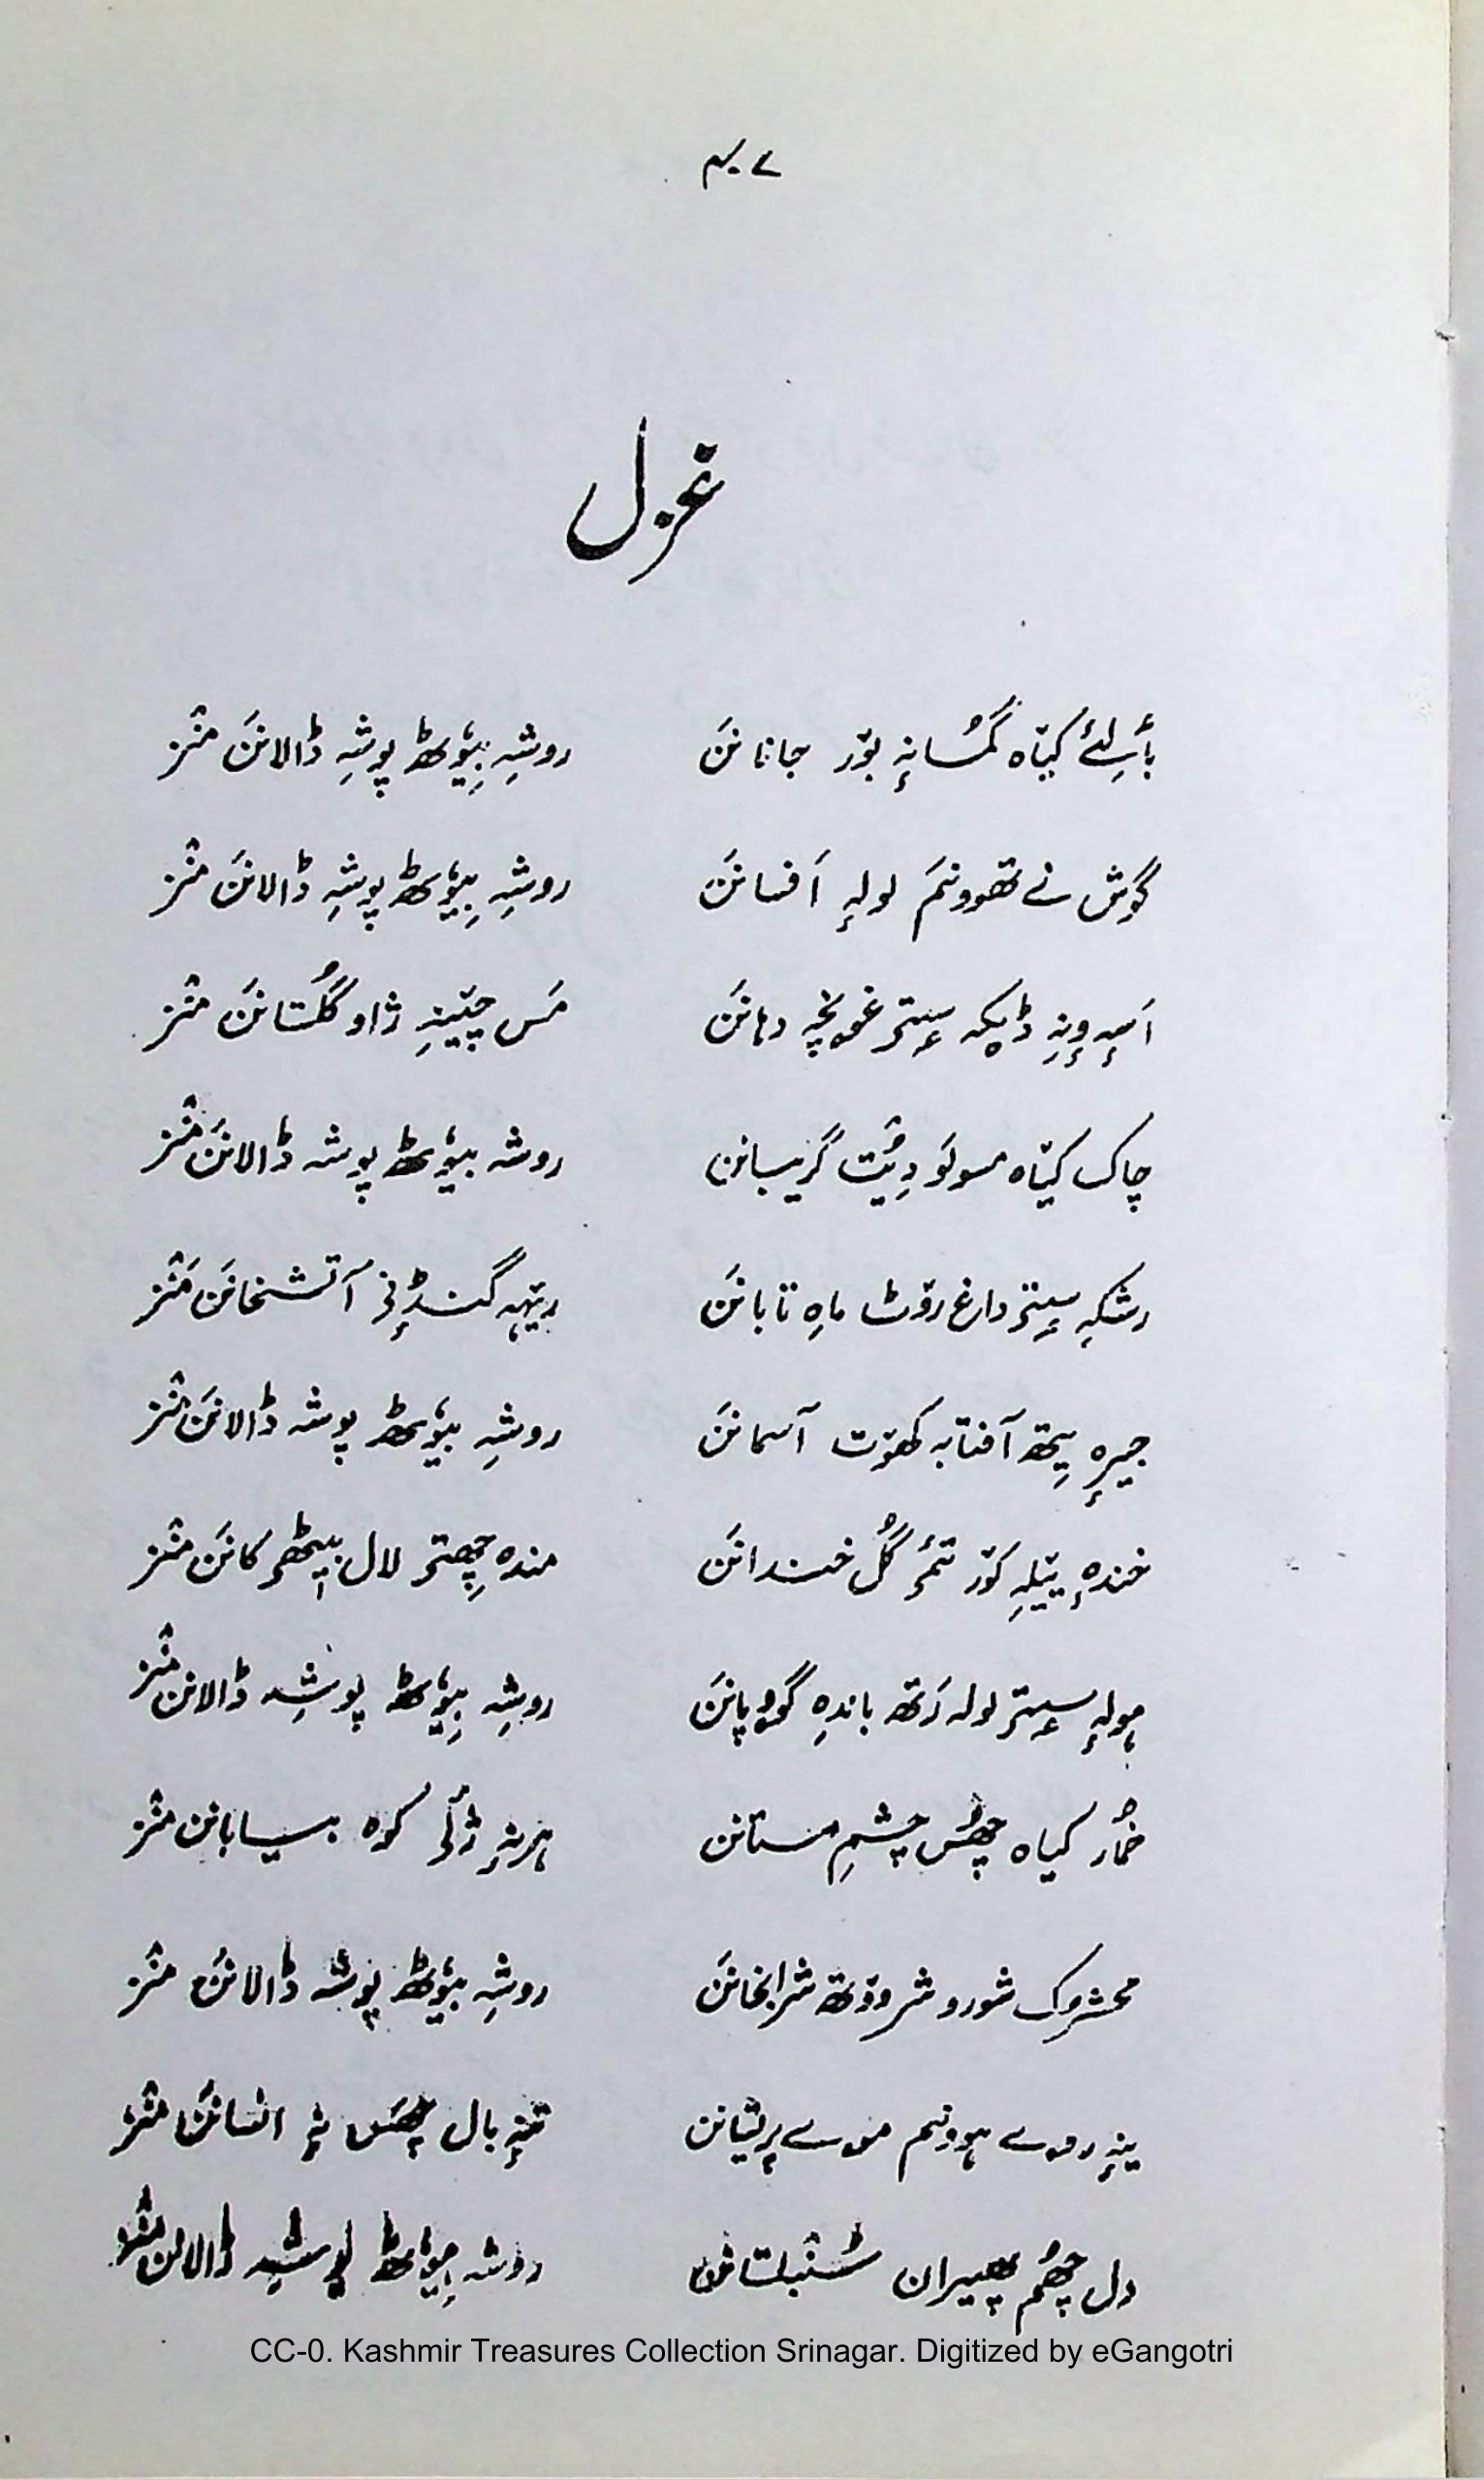 ۴۷
غزل
بأسۍ لئے کیٛاہ گُمسانہٕ بوٚر جانانَن روشہِ بیوٗٹھ پوشہِ ڈالانَن منٛز
گوش نے تھوونَم لولہٕ اَفسانَن روشہِ بیوٗٹھ پوشہِ ڈالانَن منٛز
اَسہٕ ونِہِ ڈیکہ سٟتۍ غونچہ دہانَن مَس چیٚنہِ ژاو گُلستانَن منٛز
چاک کیٛاہ مسولَو دِیُت گَریبانن روشہ بیوٗٹھ پوشہ ڈالانَن منٛز
رشکہِ سٟتۍ داغ روٚٹ ماہِ تابانَن ریٚہہ گنڈٕنۍ آتشخانَن مَنٛز
جیرہٕ یِتھ آفتابہ کھوٚت آسمانَن روشہِ بیوٗٹھ پوشہ ڈالانَن منٛز
خندہٕ ییٚلہِ کوٚر تمۍ گُل خندانَن مندہ چھِتۍ لال بیٹھۍ کانَن منٛز
ہولہٕ سٟتۍ لولہ رَتھ باندہِ گوو پانَن روشہِ بیوٗٹھ پوشہِ ڈالانن منٛز
خُمار کیاہ چھُس چشمِ مستانن ہرنہٕ ژٔلۍ کوہ بیابانن منٛز
محشرُک شور و شر ووٚتھ شرابخانَن روشہِ بیوٗٹھ پوشہ ڈالانَن منٛز
ینہٕ روے ہوونم موے پریشانن تنہٕ بال چھَس نہٕ انسانَن منٛز
دل چھُم پھیران سُنبلستانن روشہ بیوٗٹھ پوشہِ ڈالانن منٛز
CC-0. Kashmir Treasures Collection Srinagar. Digitized by eGangotri